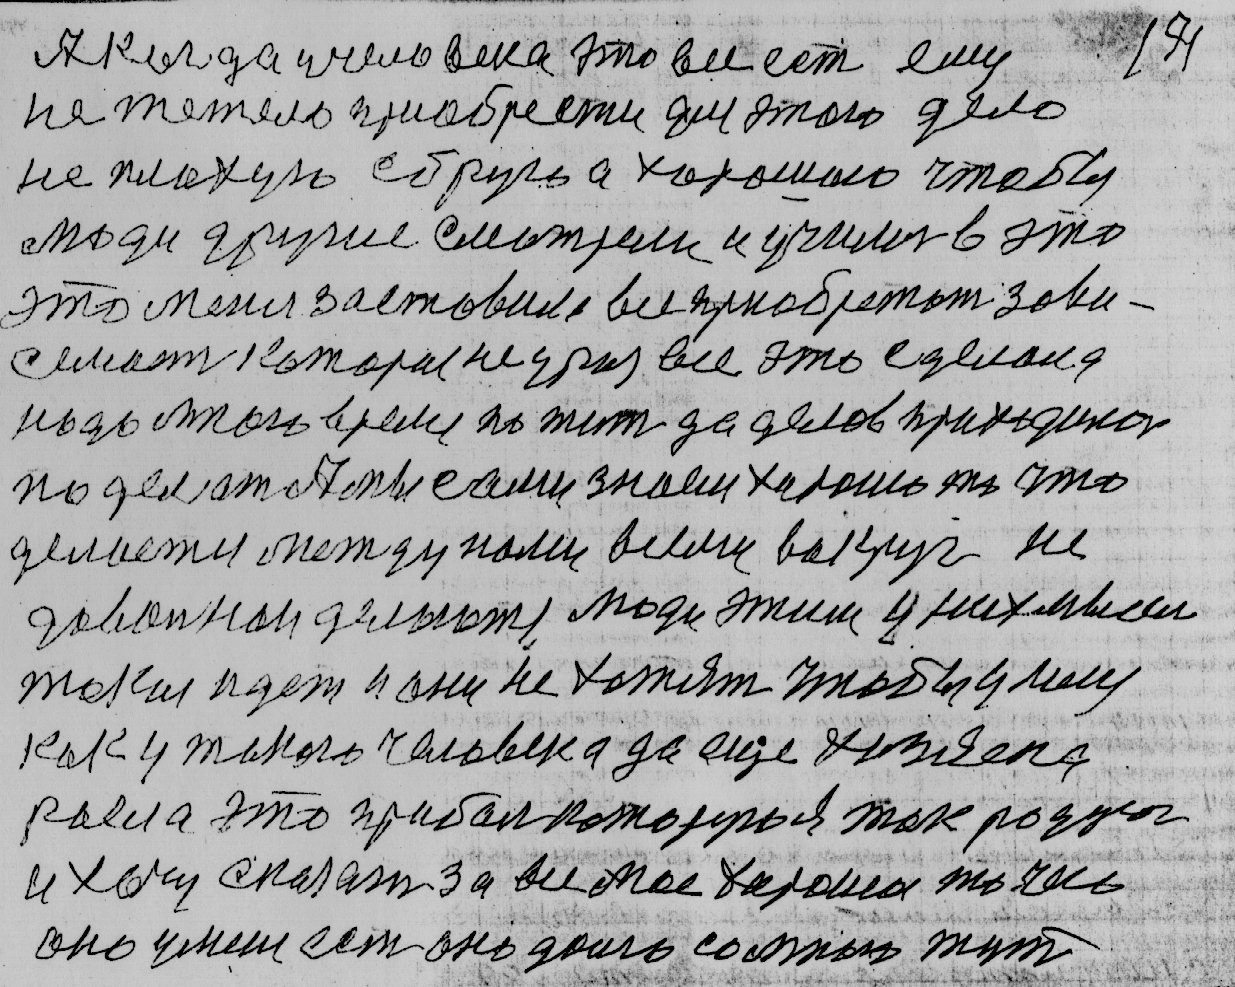 191
А когда у человека это все ест ему
не тежело приобрести для этого дело
не плохую сбрую а хорошою чтобы
люди другие смотрели и училис в это
это меня заставило все приобретат зави-
семост которая не убил все это сделано
надо много время пожит да делов приходилос
поделат А мы сами знаем харошо то что
делаетя между нами всеми вокруг не
довольной делают люди этим у них мысл
такая идет и они не хотят чтобы у меня
как у такого человека да еще хозяена
росла это прибал которую я так родилос
и хочу сказат за все мое харошое то чего
оно у мене ест оно долго со мною жит